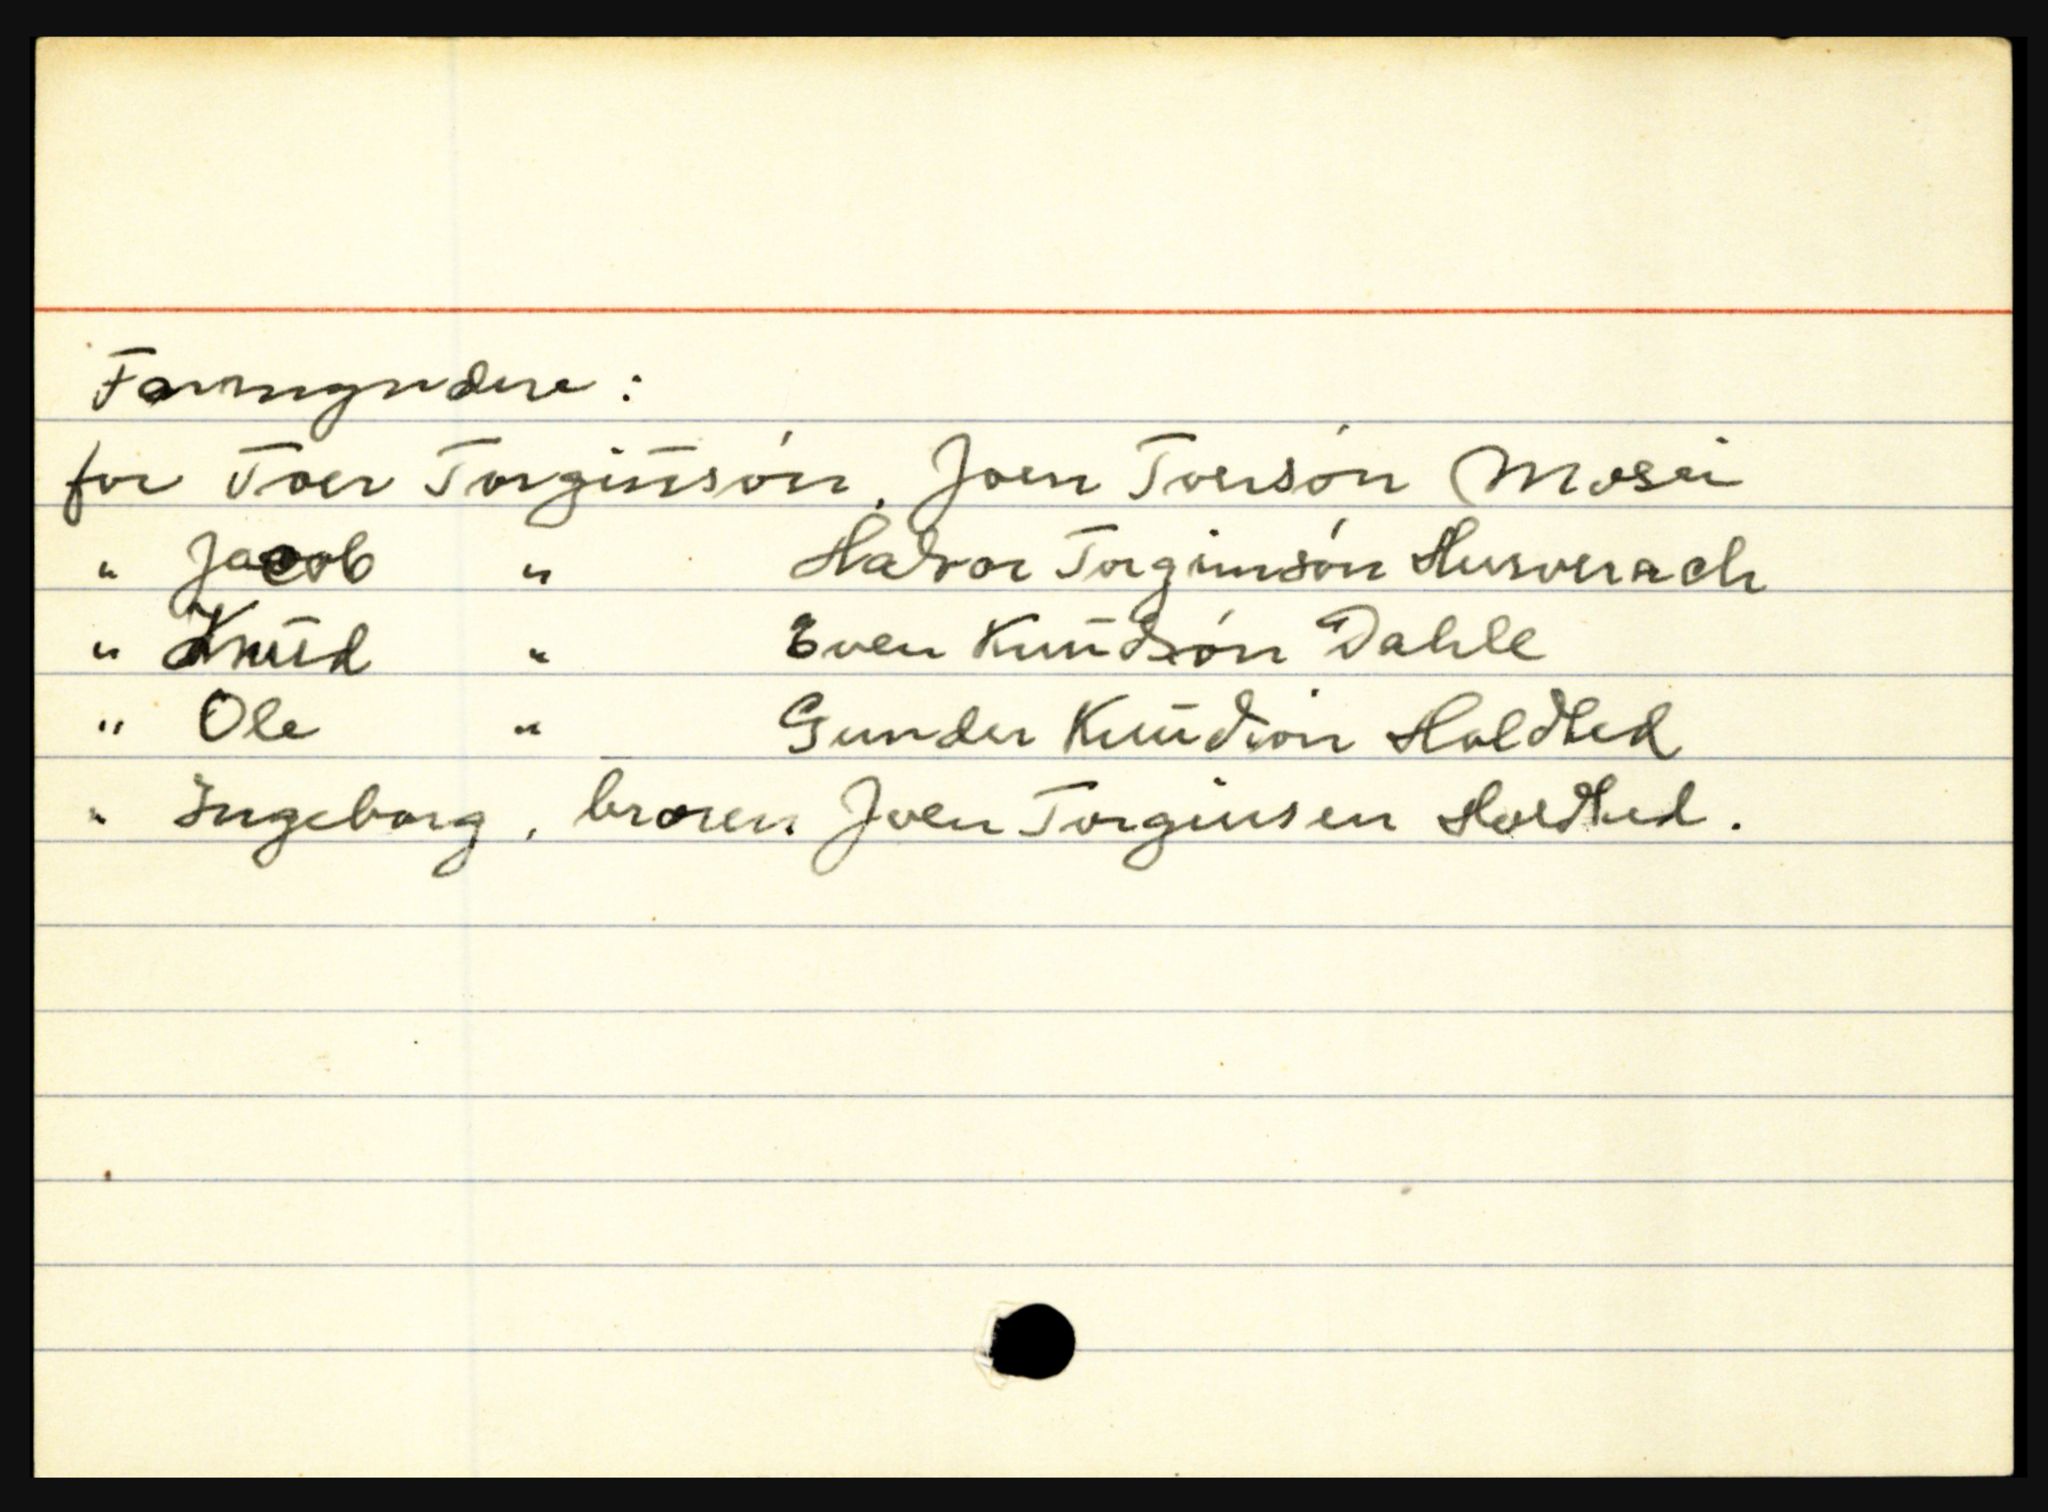 Formyndere :
for Toer Torginsøn, Joen Toersøn Mosei
" Jacob " Halvor Torgimsøn Husverach
" Knud " Even Knudsøn Dahle
" Ole " Gunder Knudsøn Holdhed
" Ingeborg, broren Joen Torginsen Holdhed.